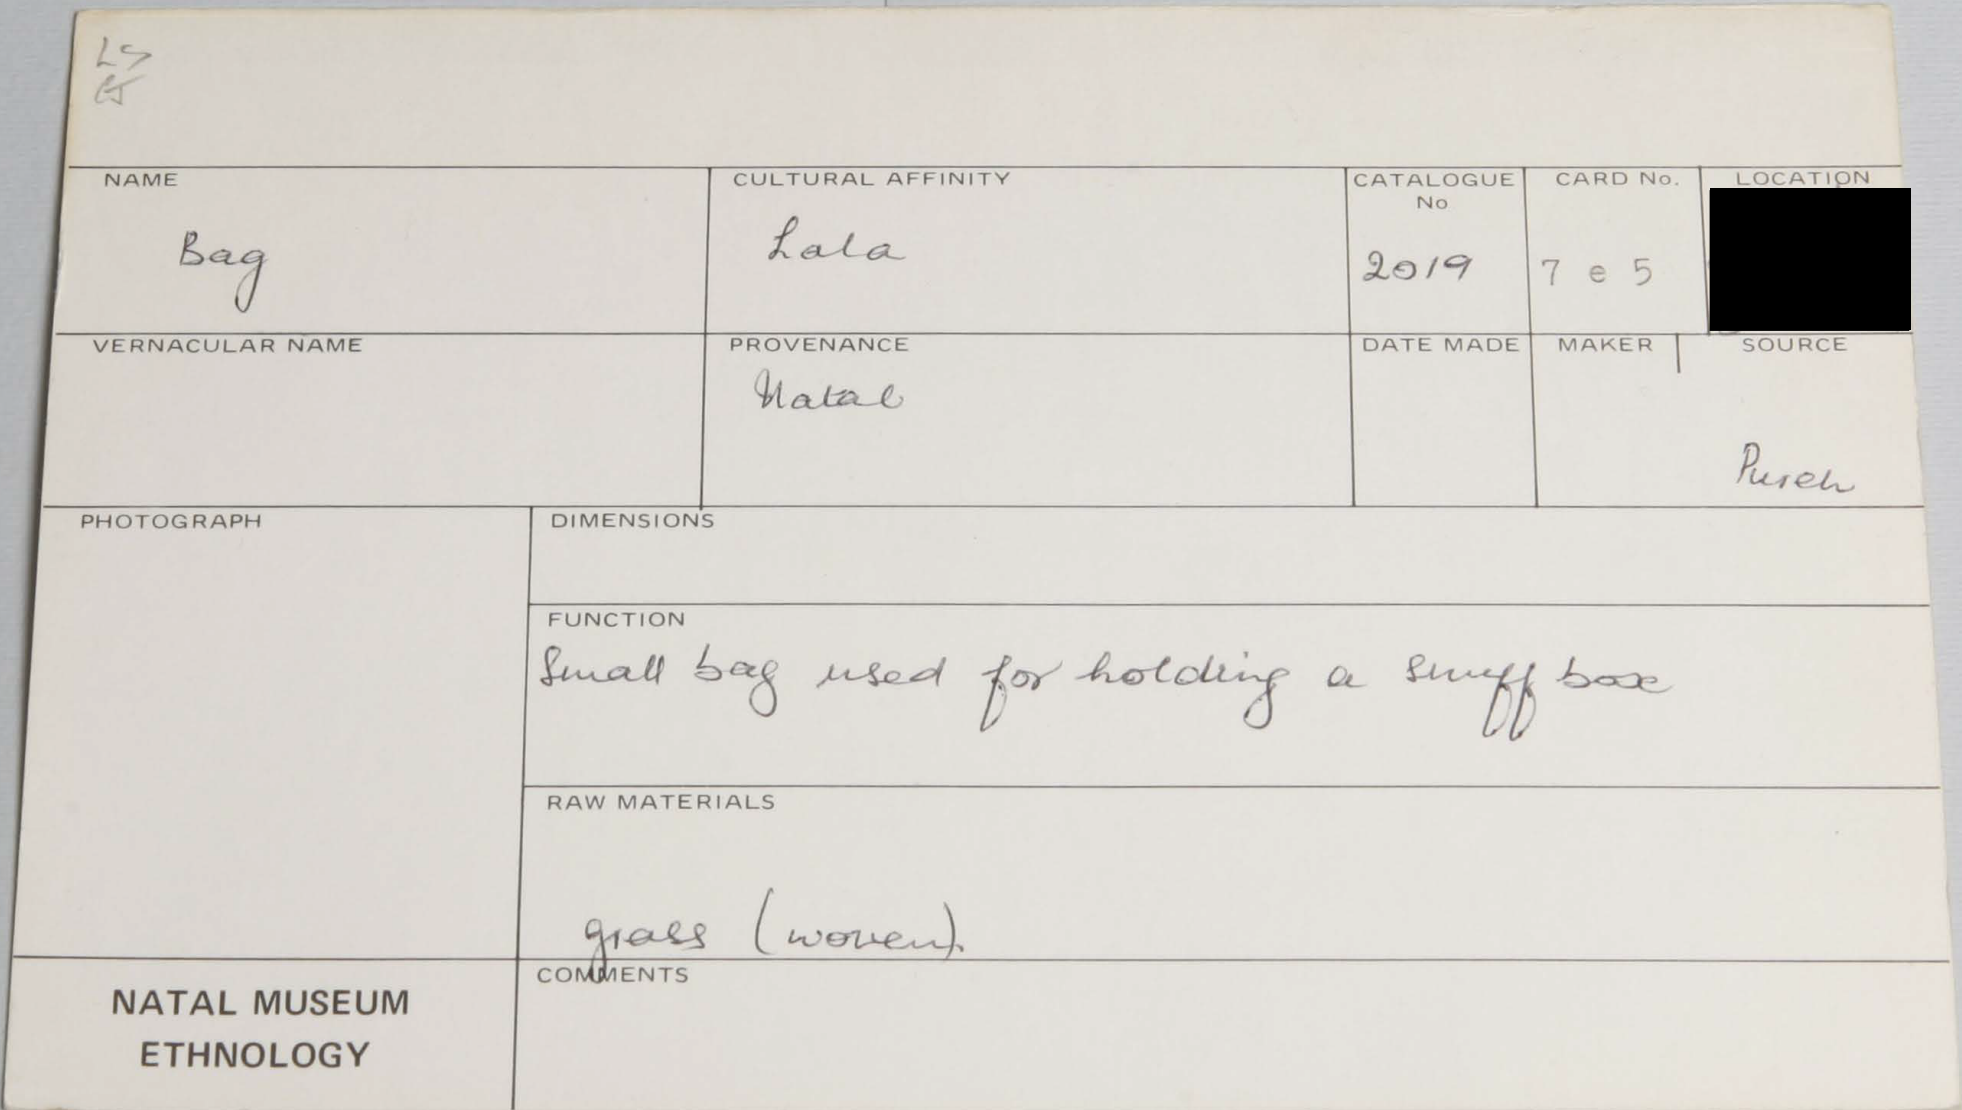 LS
NAME
Bag
CULTURAL AFFINITY
Lala
CATALOGUE
No
2019
CARD No.
7 e 5
LOCATION
VERNACULAR NAME
PROVENANCE
Natal
DATE MADE
MAKER
SOURCE
Purch
PHOTOGRAPH
DIMENSIONS
FUNCTION
Small bag used for holding a snuff box
RAW MATERIALS
grass (woven).
NATAL MUSEUM
ETHNOLOGY
COMMENTS